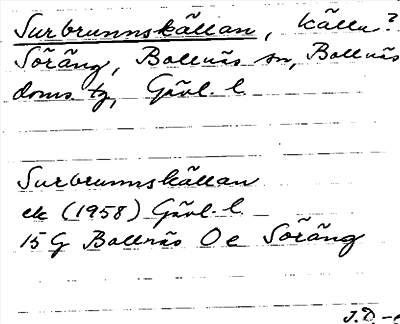 Surbrunnskällan, källa?
Söräng, Bollnäs sn, Bollnäs
doms. tg, Gävl. l.
Surbrunnskällan
ek (1958) Gävl. l.
15 G Bollnäs O e Söräng